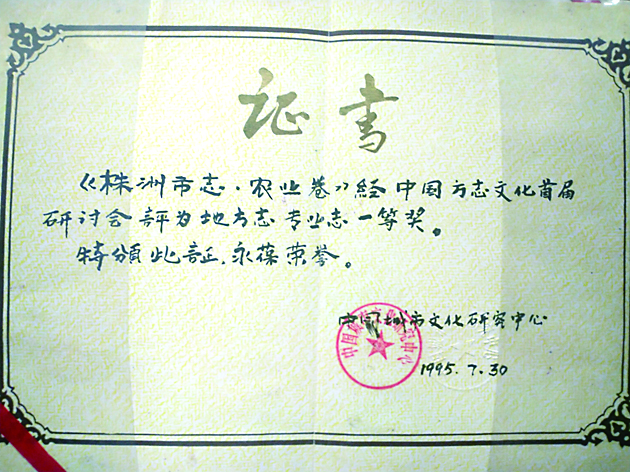 证书
《株洲市志·农业卷》经中国方志文化首届
研讨会評为地方志专业志一等奖。
特頒此証,永葆荣誉。
中国城市文化研究中心
1995.7.30